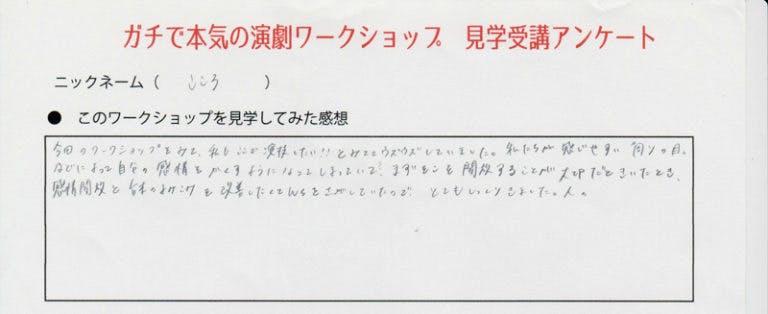 ガチで本気の演劇ワークショップ 見学受講アンケート
ニックネーム（ こころ ）
● このワークショップを見学してみた感想
今回のワークショップをみて、私もここで演技したい!!とみててウズウズしていました。私たちが感じやすい周りの目。
などによって自分の感情をかくすようになってしまっていて、まずそこを開放することが大切だときいたとき、
感情開放と台本の を改善したくてWSをさがしていたので とてもしっくりきました。人。